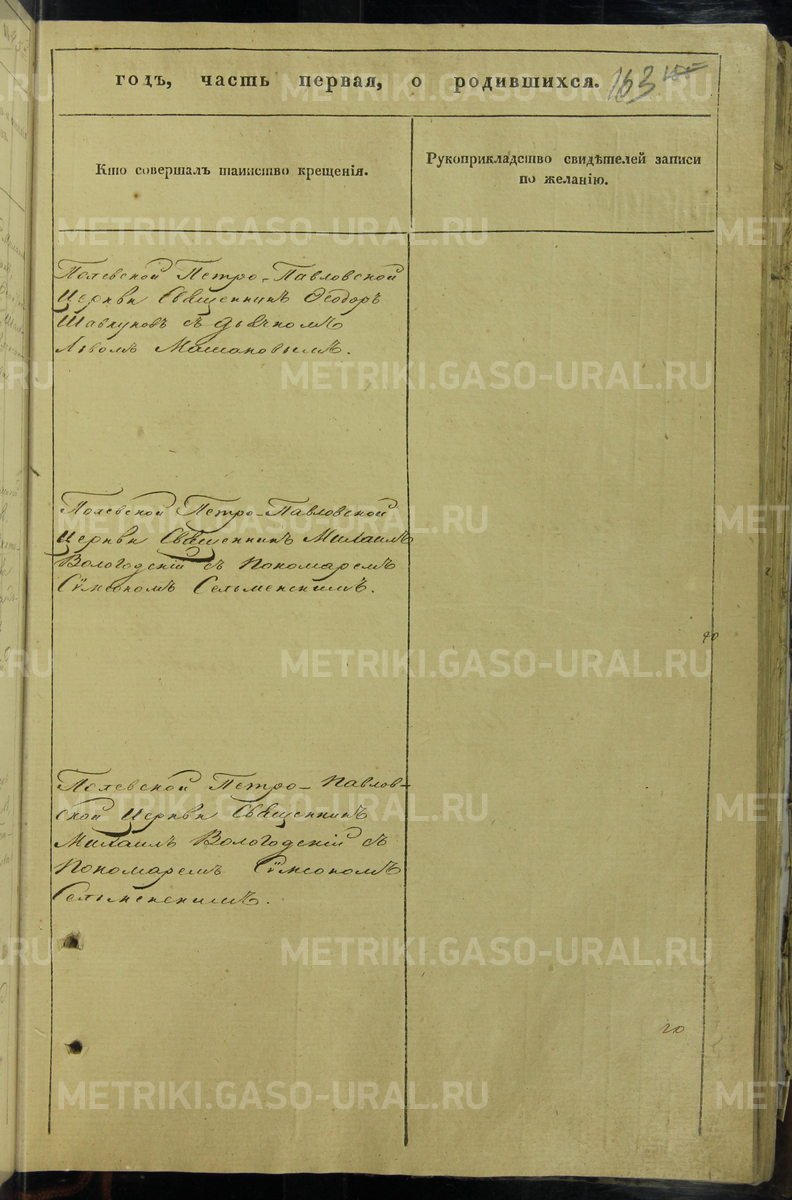 годъ, часть первая, о родившихся. 163
Кто совершалъ таинство крещенія.
Рукоприкладство свидѣтелей записи
по желанію.
Полевской Петро-Павловской
Церкви Священникъ Ѳеодоръ
съ дьячкомъ
Львомъ
Полевской Петро-Павловской
Церкви Священникъ Михаилъ
Вологодскій съ Пономаремъ
Сѵмеономъ Сельменскимъ.
Полевской Петро-Павлов-
ской Церкви Священникъ
Михаилъ Вологодскій съ
Пономаремъ Сѵмеономъ
Сельменскимъ.
METRIKI.GASO-URAL.RU